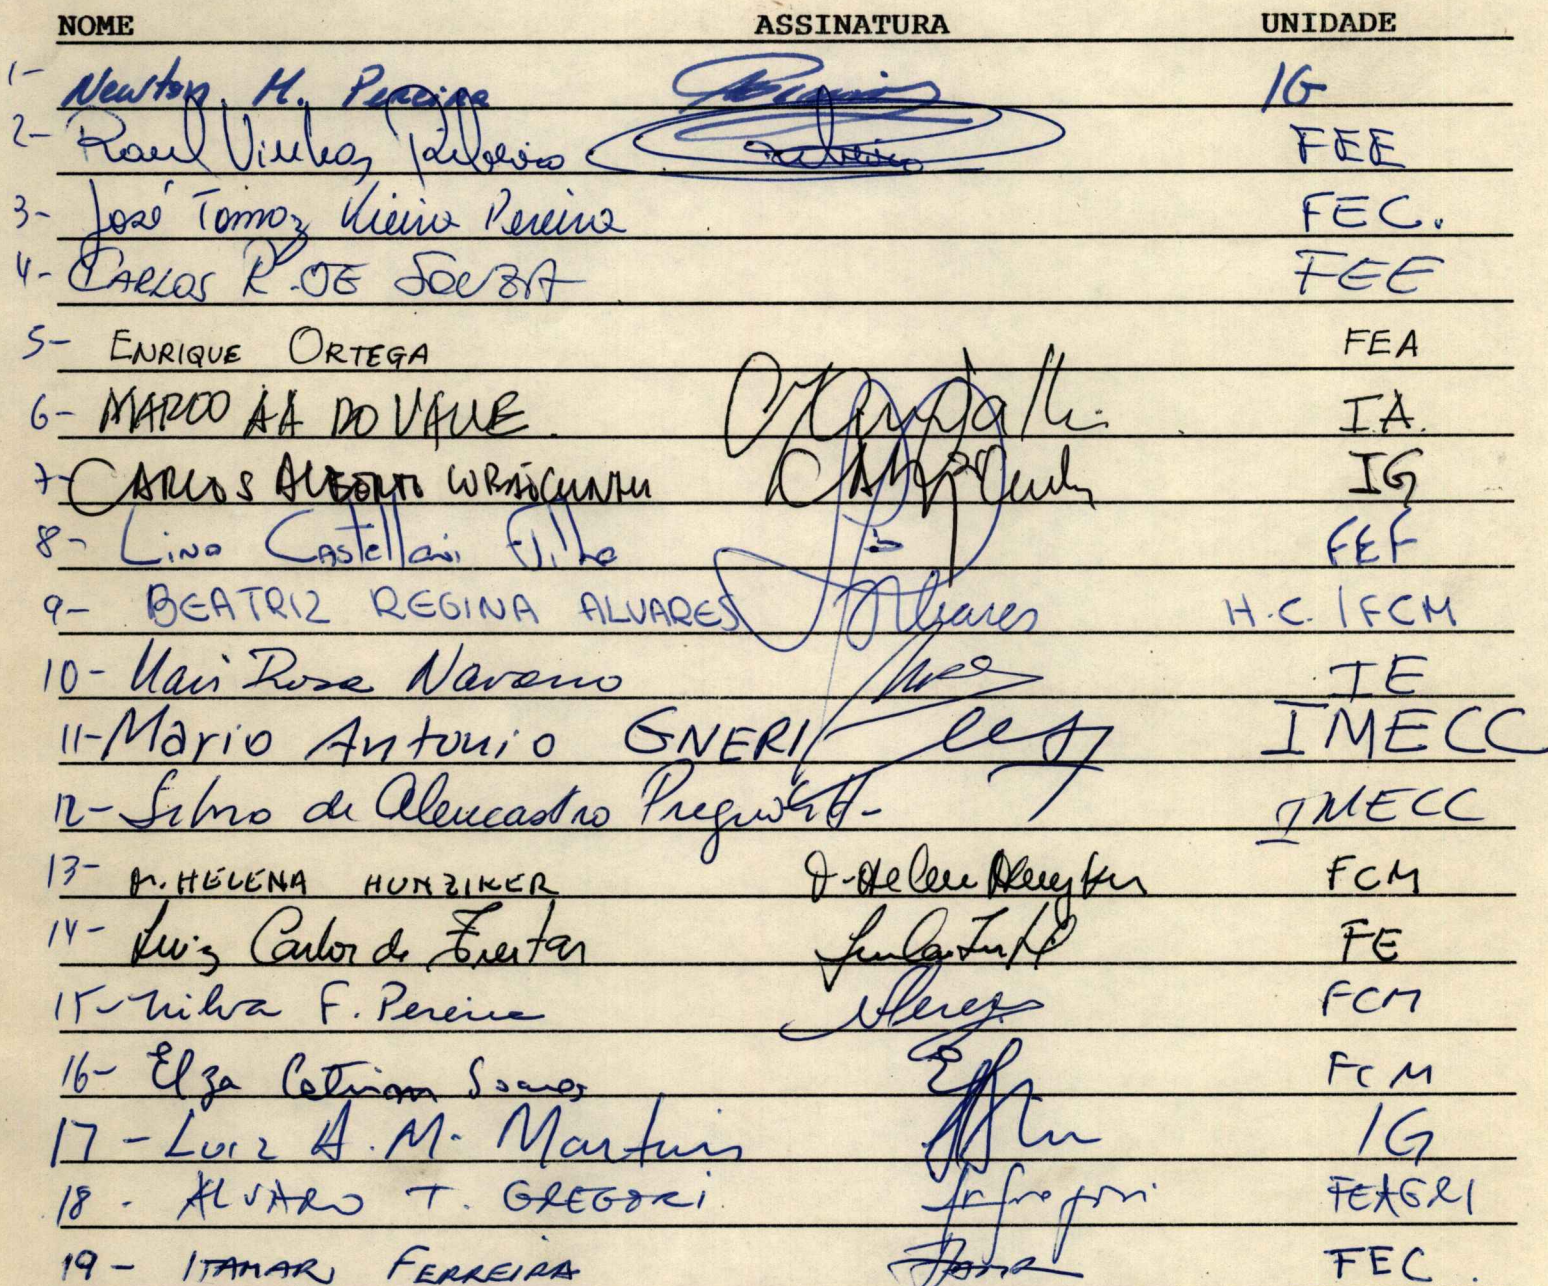 NOME ASSINATURA UNIDADE
1- Newton M. Pereira IG
2- Raul Vinhas Ribeiro Ribeiro FEE
3- José Tomaz Vieira Pereira FEC.
4- CARLOS R. DE SOUZA FEE
5- ENRIQUE ORTEGA FEA
6- MARCO AA DO VALLE. I.A.
7- CARLOS ALBERTO LOBÃO CUNHA IG
8- Lino Castellani Filho FEF
9- BEATRIZ REGINA ALVARES Alvares H.C. / FCM
10- Rosa Navarro IE
11- Mario Antonio GNERI IMECC
12- de Alencastro IMECC
13- M. HELENA HUNZIKER FCM
14- Luiz Carlos de Freitas FE
15- Nilva F. Pereira FCM
16- Elza Soares FCM
17- Luiz A. M. Martins IG
18- ALVARO T. GREGORI FEAGRI
19- ITAMAR FERREIRA FEC.